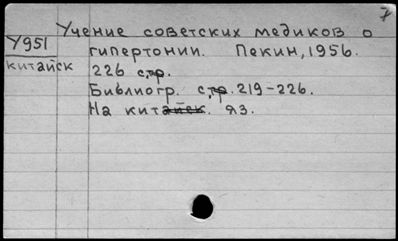 7
Учение советских медиков о
У951 гипертонии. Пекин, 1956.
китайск 226 стр.
Библиогр. стр. 219-226.
На кит. яз.